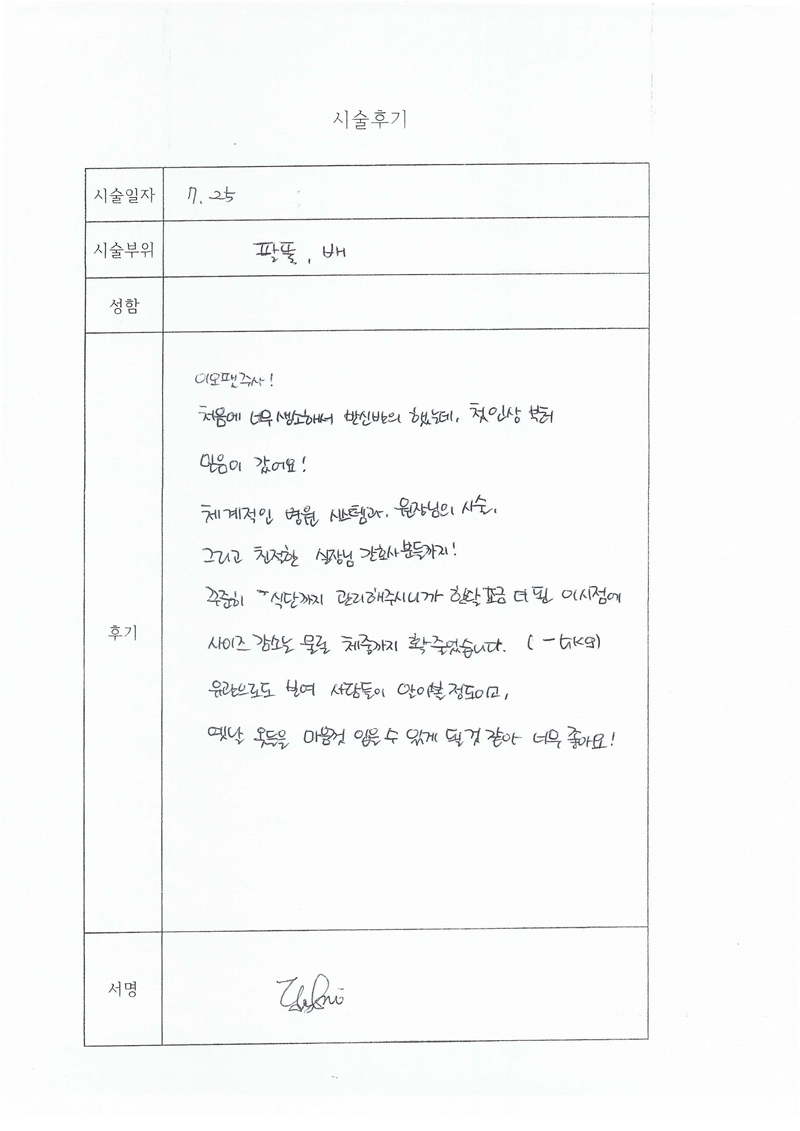 시술후기
시술일자 7. 25
시술부위 팔뚤, 배
성함
이오팬주사!
처음에 너무 생소해서 반신반의 했는데, 첫인상 부터
믿음이 갔어요!
체계적인 병원 시스템과, 원장님의 시술,
그리고 친절한 실장님 간호사분들까지!
꾸준히 식단까지 관리해주시니까 한달 조금 더 된 이시점에
후기
사이즈 감소는 물론 체중까지 확 줄었습니다.
육관으로도 보여 사람들이 알아볼정도이고,
옛날 옷들을 마음껏 입을 수 있게 될것 같아 너무 좋아요!
서명